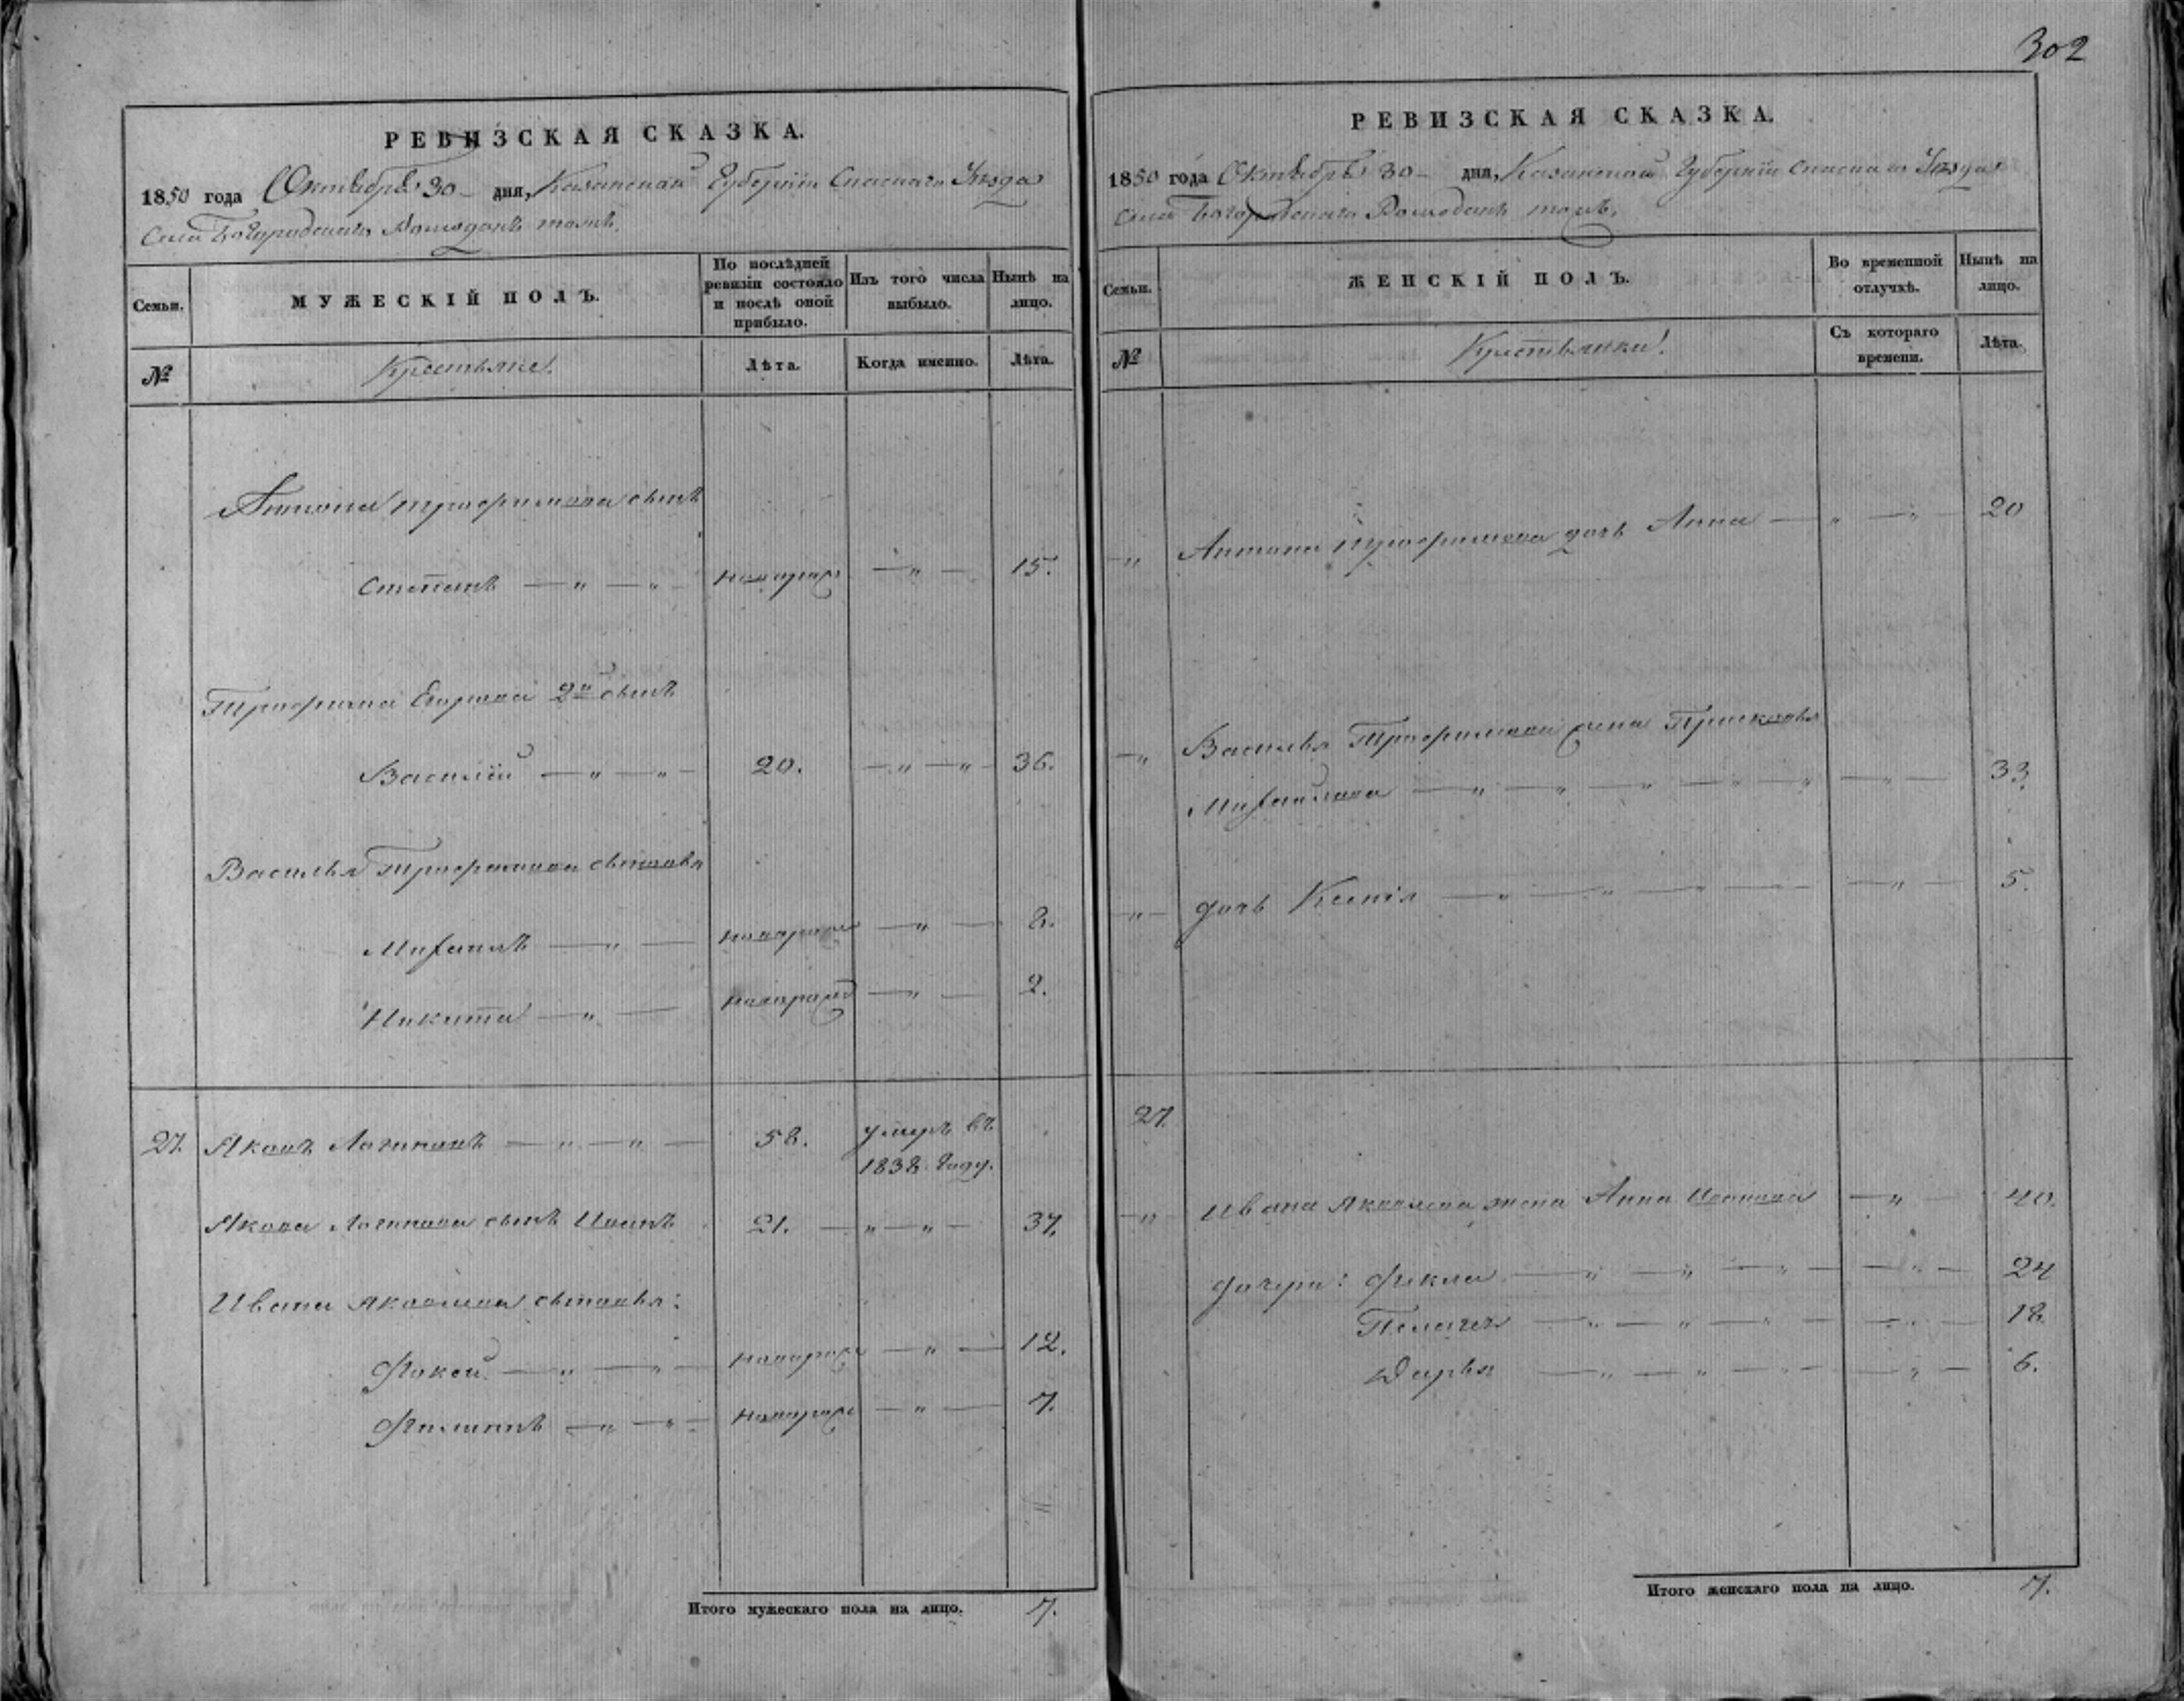 302
РЕВИЗСКАЯ СКАЗКА.
1850 года Октября 30 дня, Казанской Губерніи Спаскаго Уѣзда
Села Богородскаго Ромодань тожъ.
Семьи. МУЖЕСКІЙ ПОЛЪ. По послѣдней ревизіи состояло и послѣ оной прибыло. Изъ того числа выбыло. Нынѣ на лицо.
№ Крестьяне. Лѣта. Когда именно. Лѣта.
Антона Трофимова сынъ
Степанъ — " — " — новорож — " — 15.
Трофима 2й сынъ
Василій — " — " — 20. — " — " — 36.
Василья Трофимова сыновья
Михаилъ — " — новорож — " — 8.
Никита — " — новорожд — " — 2.
27. Яковъ Логиновъ — " — " — 58. умеръ въ
1838 году.
Якова Логинова сынъ Иванъ 21. — " — " — 37.
Ивана Яковлева сыновья:
Фокей — " — " — новорож — " — 12.
Филиппъ — " — " — новорож — " — 7.
Итого мужескаго пола на лицо. 7.
РЕВИЗСКАЯ СКАЗКА.
1850 года Октября 30 дня, Казанской Губерніи Спаскаго Уѣзда
Села Богородскаго Ромодань тожъ.
Семьи. ЖЕНСКІЙ ПОЛЪ. Во временной отлучкѣ. Нынѣ на лицо.
№ Крестьянки. Съ котораго времени. Лѣта.
— " Антона Трофимова дочь Анна — " — " — 20
— " Василья Трофимова жена Прасковья
Михайлова — " — " — " — " — " — " — 33.
— " — дочь Ксенія — " — " — " — " — 5.
27.
— " — Ивана Яковлева жена Анна Иванова — " — 40.
дочери: Фекла — " — " — " — " — 24
Пелагея — " — " — " — " — 18.
Дарья — " — " — " — " — 6.
Итого женскаго пола на лицо. 7.